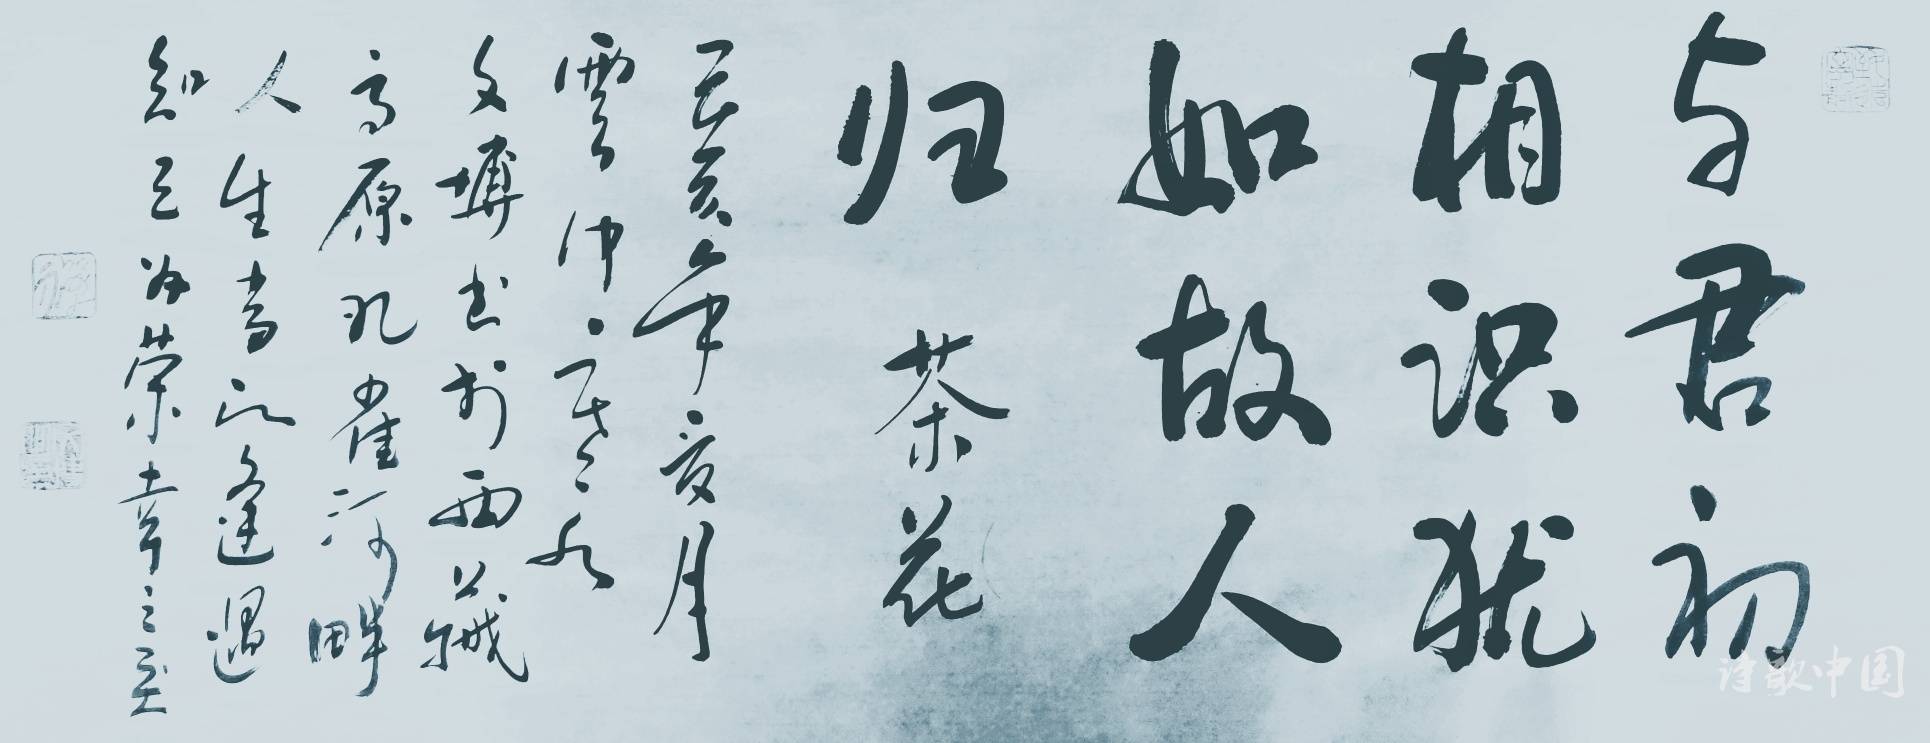 与君初
相识犹
如故人
归 茶花
己亥年夏月
雲仲
文博书于西藏
高原孔雀河畔
人生当以逢遇
知己为荣幸之至
诗歌中国